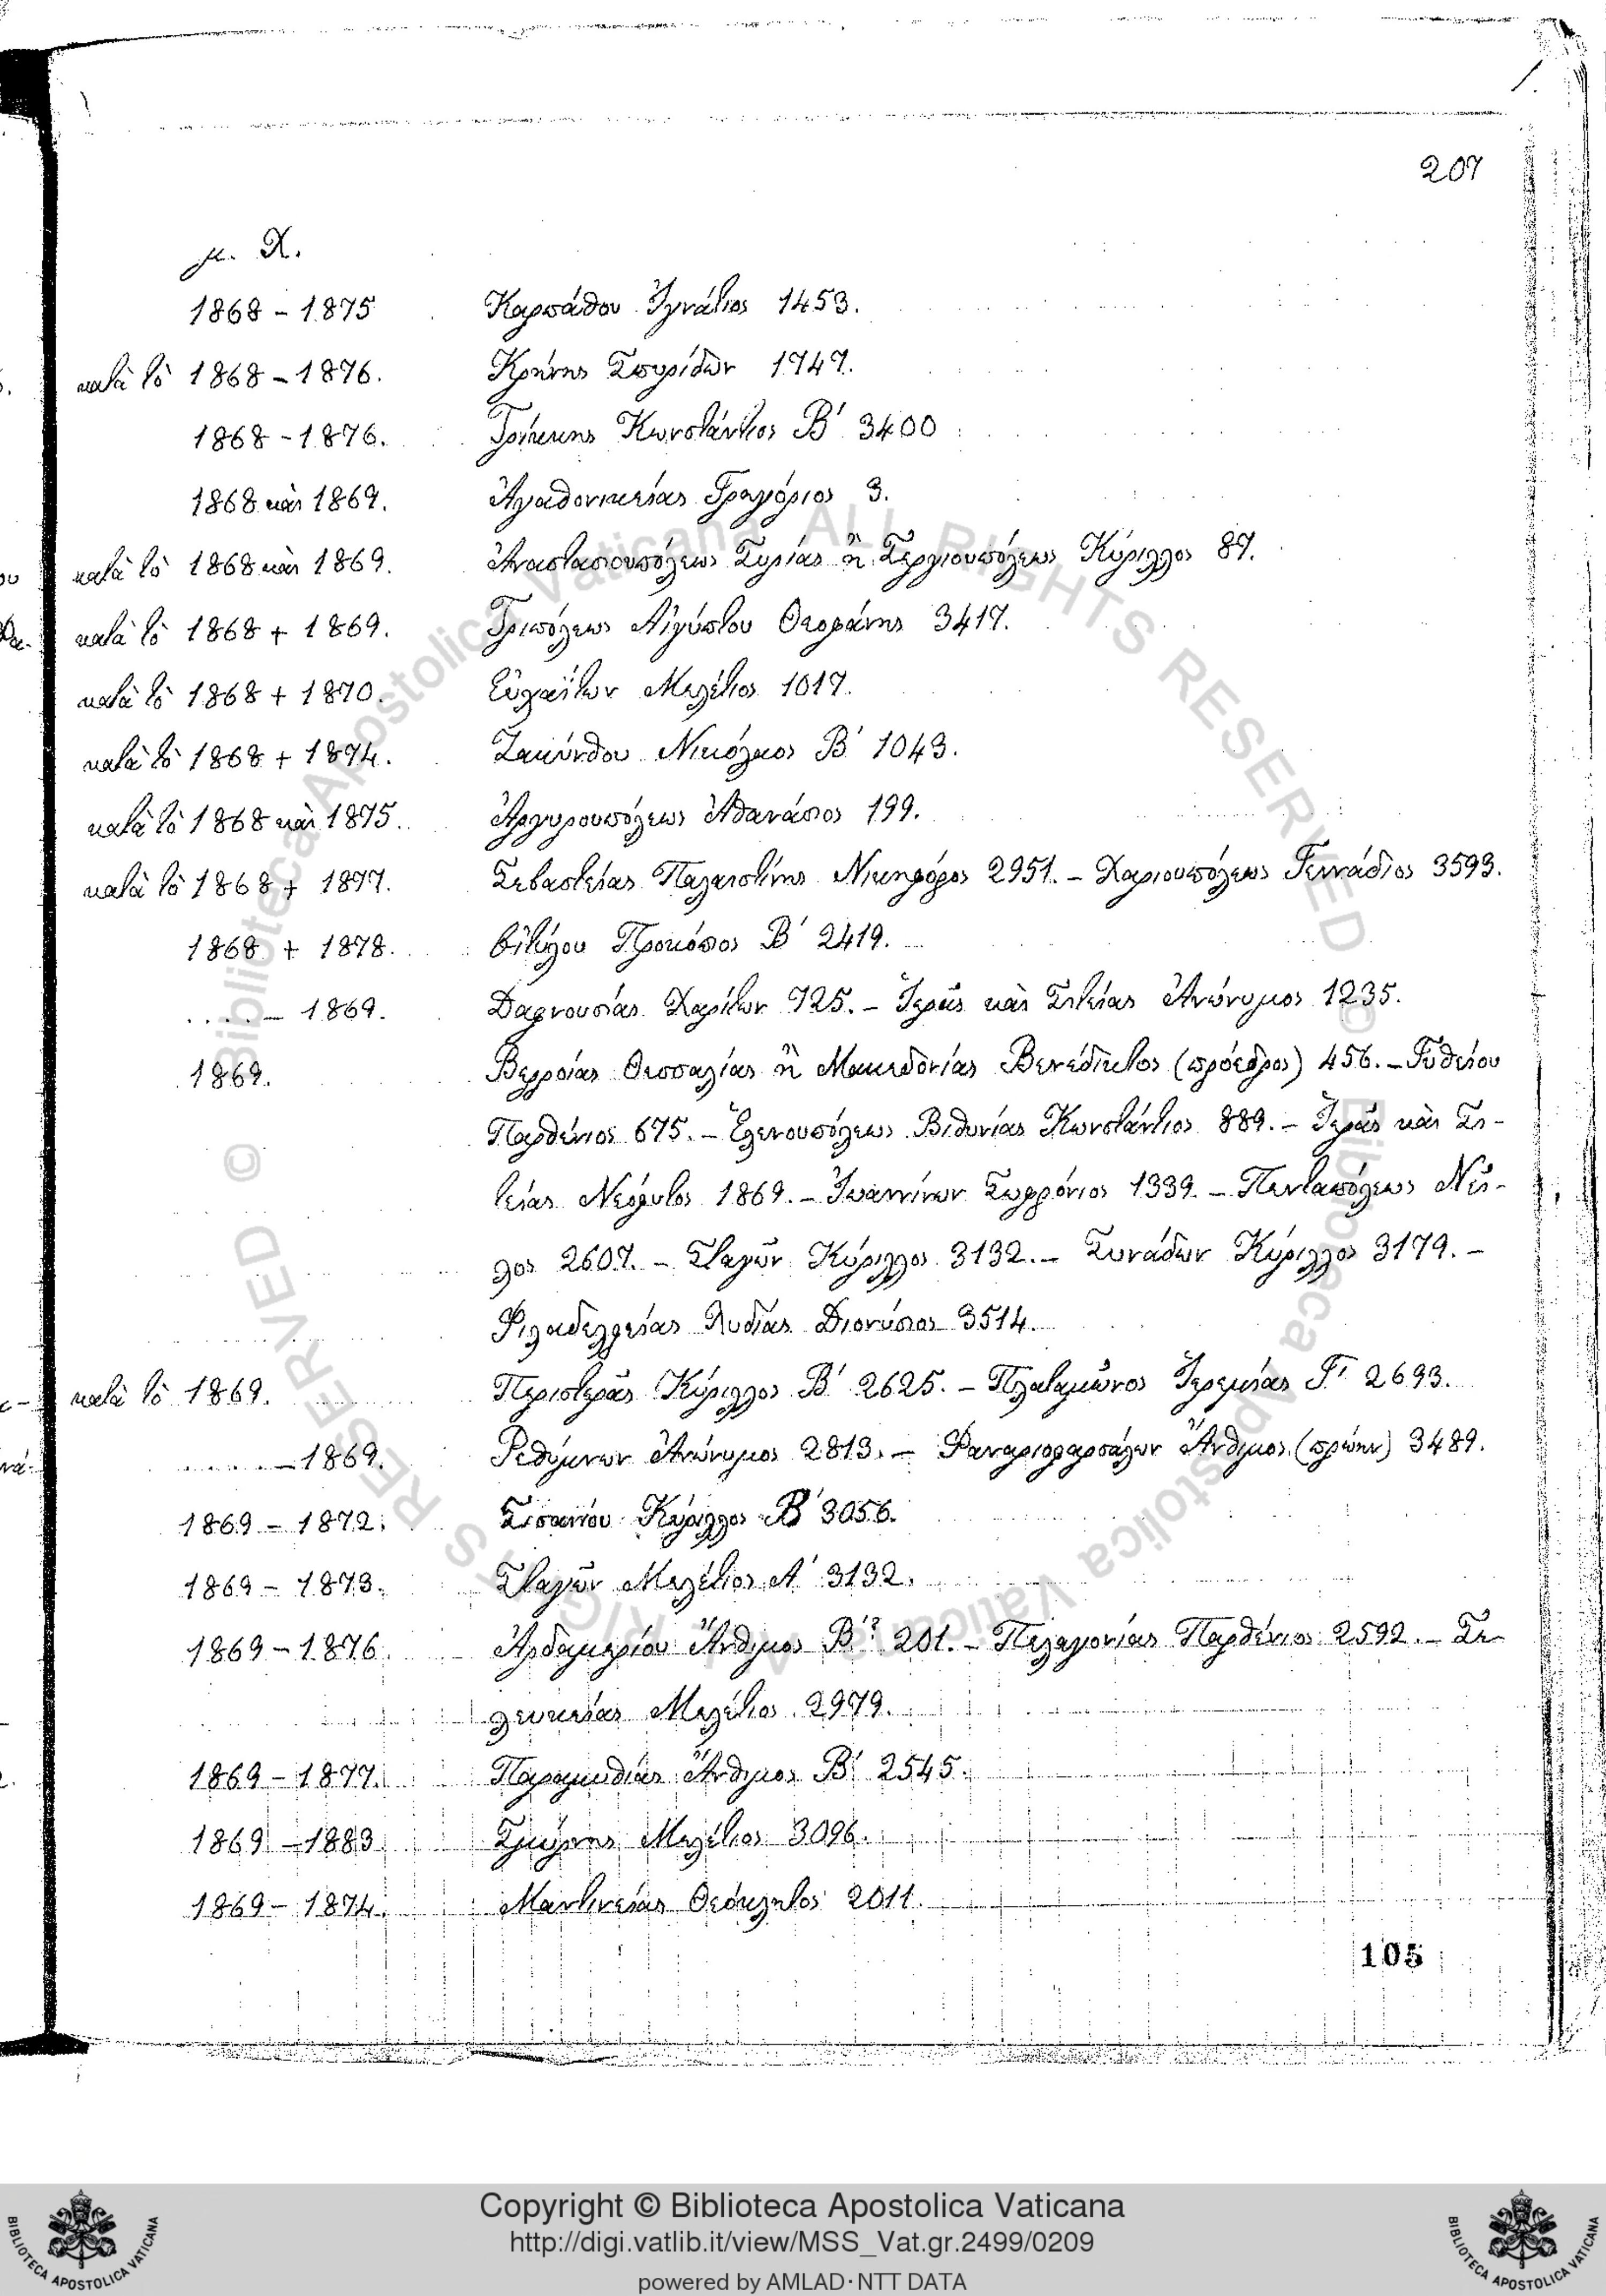 207
μ. Χ.
1868 – 1875 Καρπάθου Ἰγνάτιος 1453.
κατὰ τὸ 1868 – 1876. Κρήνης Σπυρίδων 1747.
1868 – 1876. Τρίκκης Κωνστάντιος Β' 3400
1868 καὶ 1869. Ἀγαθονικείας Γρηγόριος 3.
κατὰ τὸ 1868 καὶ 1869. Ἀναστασιουπόλεως Συρίας ἢ Σεργιουπόλεως Κύριλλος 87.
κατὰ τὸ 1868 + 1869. Τριπόλεως Αἰγύπτου Θεοφάνης 3417.
κατὰ τὸ 1868 + 1870. Εὐχαΐτων Μελέτιος 1017.
κατὰ τὸ 1868 + 1874. Ζακύνθου Νικόλαος Β' 1043.
κατὰ τὸ 1868 καὶ 1875. Ἀργυρουπόλεως Ἀθανάσιος 199.
κατὰ τὸ 1868 + 1877. Σεβαστείας Παλαιστίνης Νικηφόρος 2951. – Χαριουπόλεως Γεννάδιος 3593.
1868 + 1878. Οἰτύλου Προκόπιος Β' 2419.
.... – 1869. Δαφνουσίας Χαρίτων 725. – Ἱερᾶς καὶ Σητείας Ἀνώνυμος 1235.
1869. Βερροίας Θεσσαλίας ἢ Μακεδονίας Βενέδικτος (πρόεδρος) 456. – Γυθείου
Παρθένιος 675. – Ἑλενουπόλεως Βιθυνίας Κωνστάντιος 889. – Ἱερᾶς καὶ Ση-
τείας Νεόφυτος 1869. – Ἰωαννίνων Σωφρόνιος 1339. – Πενταπόλεως Νεῖ-
λος 2607. – Σταγῶν Κύριλλος 3132. – Συνάδων Κύριλλος 3179. –
Φιλαδελφείας Λυδίας Διονύσιος 3514.
κατὰ τὸ 1869. Περιστερᾶς Κύριλλος Β' 2625. – Πλαταμῶνος Ἱερεμίας Γ' 2693.
..... – 1869. Ρεθύμνων Ἀνώνυμος 2813. – Φαναριοφαρσάλων Ἄνθιμος (πρώην) 3489.
1869 – 1872. Σισανίου Κύριλλος Β' 3056.
1869 – 1873. Σταγῶν Μελέτιος Α' 3132.
1869 – 1876. Ἀρδαμερίου Ἄνθιμος Β'? 201. – Πελαγονίας Παρθένιος 2592. – Σε-
λευκείας Μελέτιος 2979.
1869 – 1877. Παραμυθίας Ἄνθιμος Β' 2545.
1869 – 1883. Σμύρνης Μελέτιος 3096.
1869 – 1874. Μαντινείας Θεόκλητος 2011.
105
© Biblioteca Apostolica Vaticana ALL RIGHTS RESERVED
Copyright © Biblioteca Apostolica Vaticana
http://digi.vatlib.it/view/MSS_Vat.gr.2499/0209
powered by AMLAD·NTT DATA
BIBLIOTECA APOSTOLICA VATICANA
BIBLIOTECA APOSTOLICA VATICANA